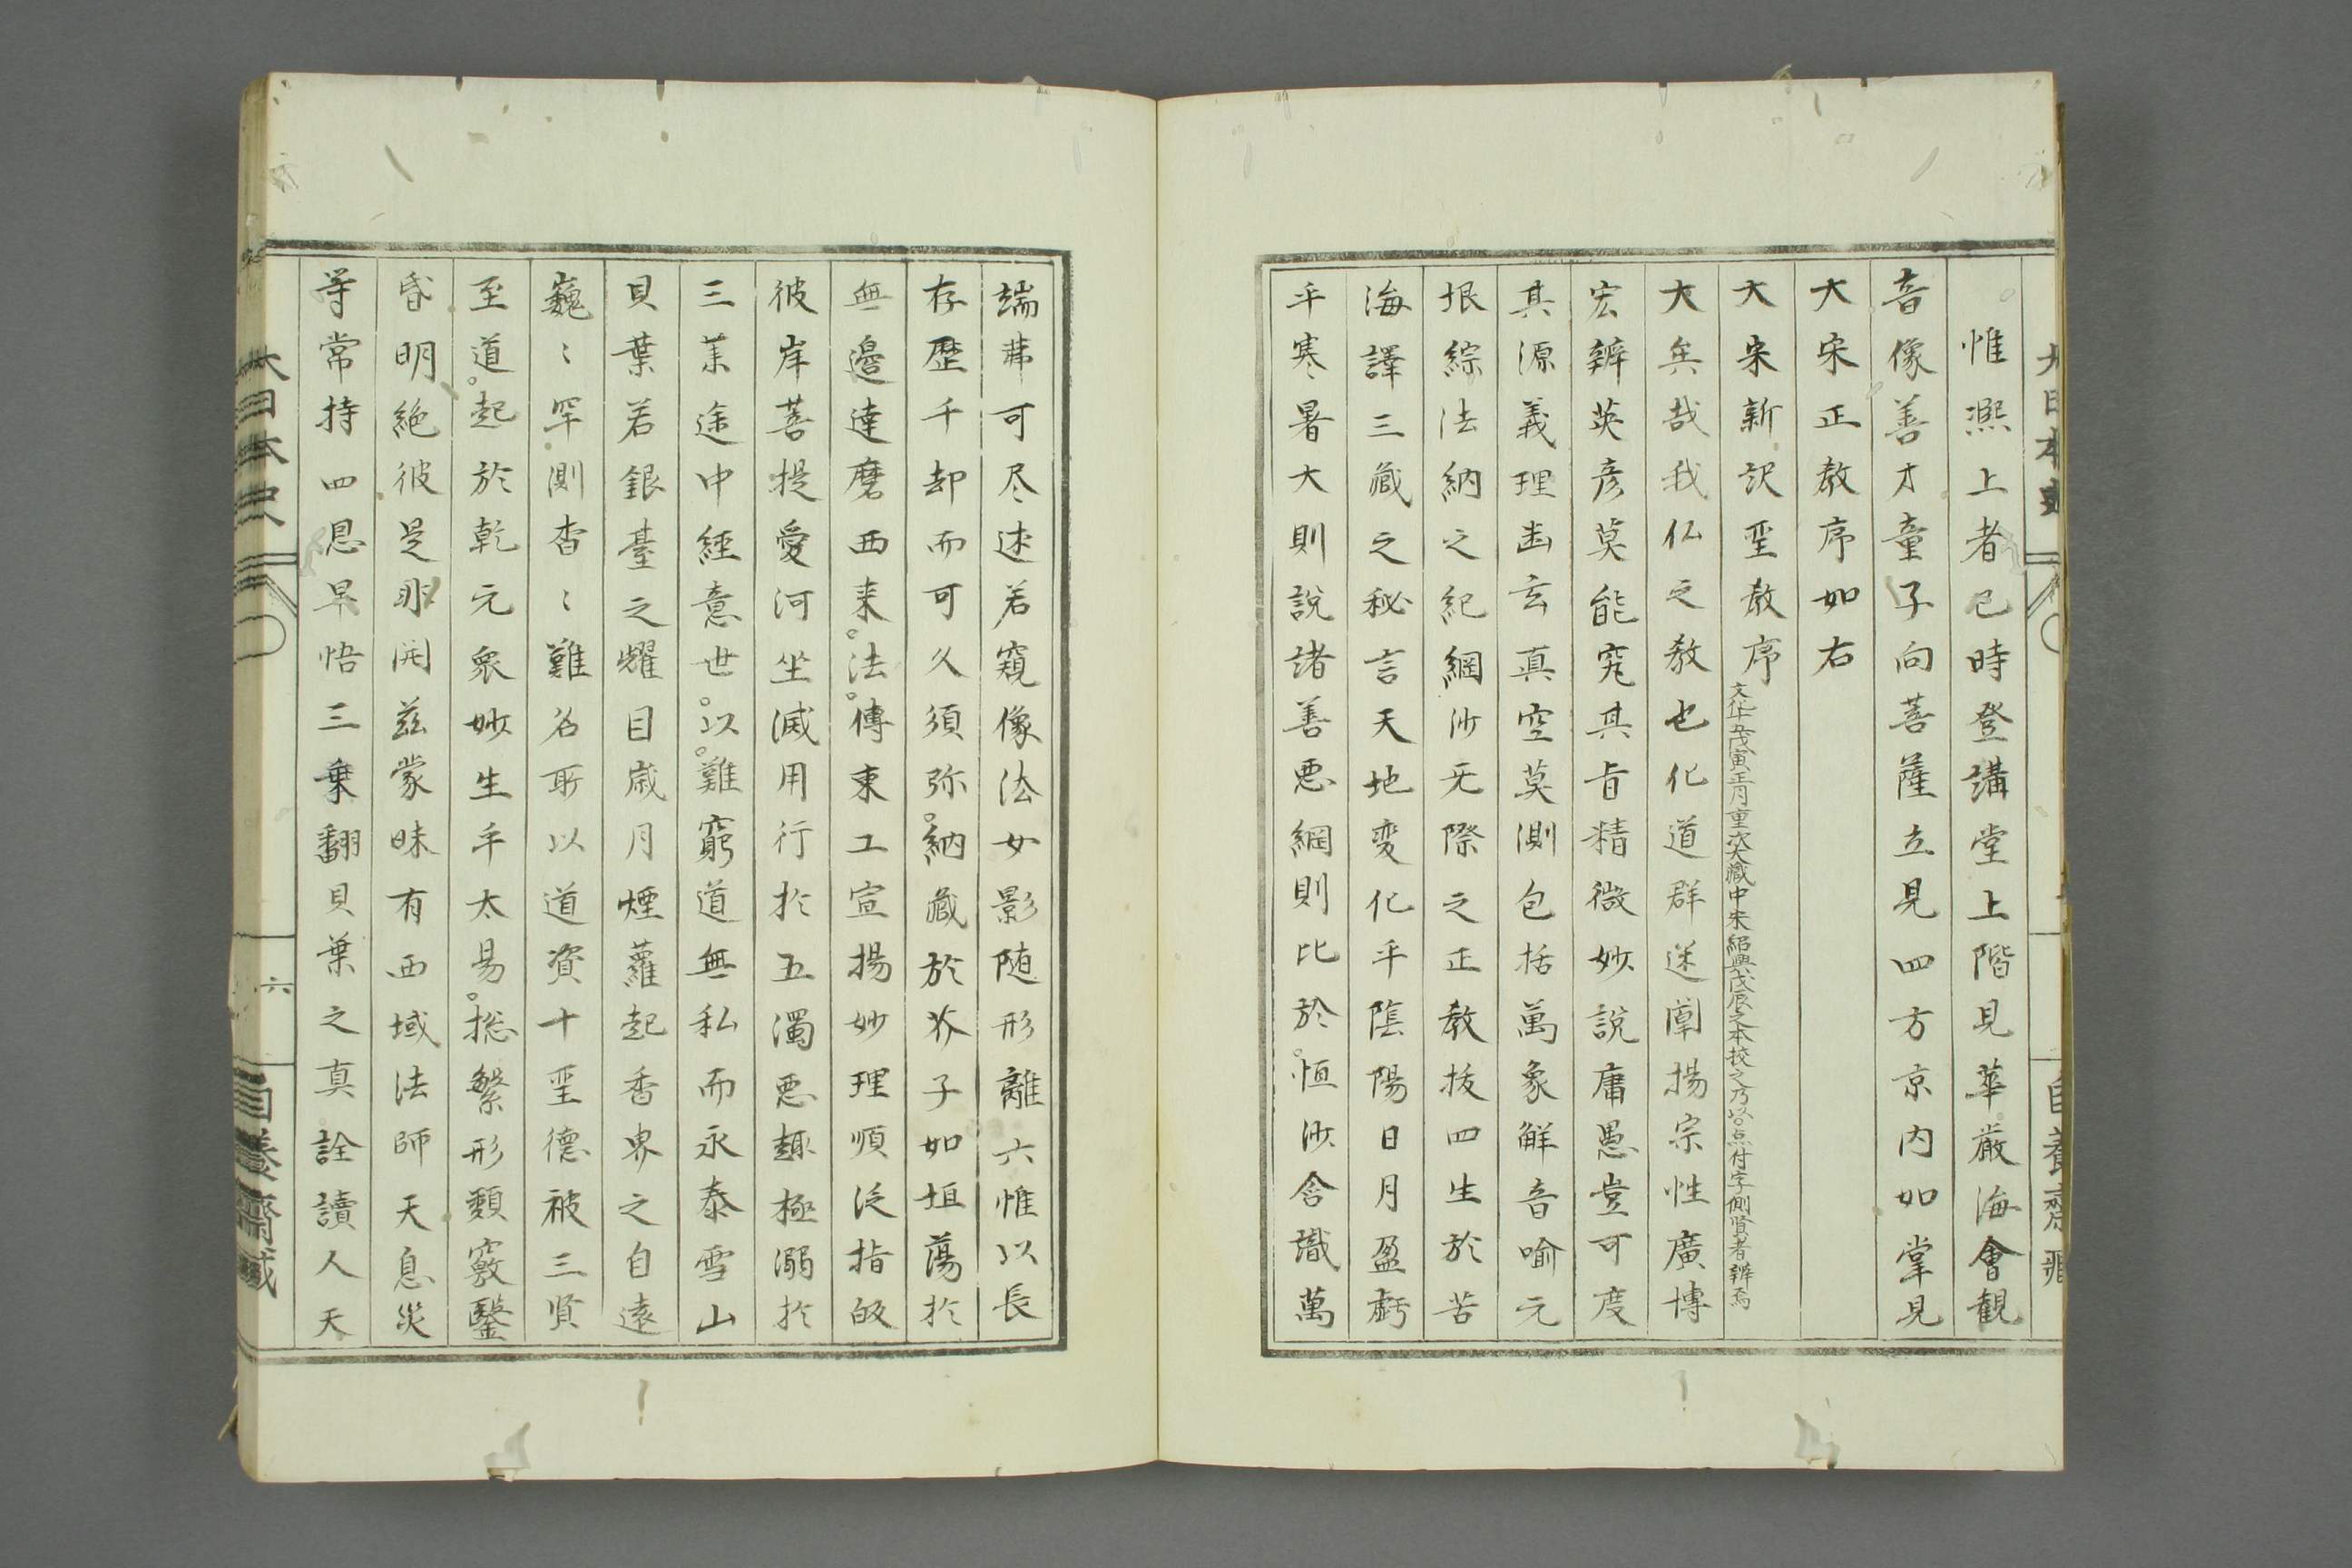 惟凞上者已時登講堂上階見華厳海會観
音像善才童子向菩薩立見四方京内如掌見
大宋正教序如右
大宋新訳聖教序
文化十五戊寅正月重次大藏中宋紹興戊辰之本挍之乃以○点付字側賢者辨焉
大矣哉我仏之教也化道群迷闡揚宗性廣博
宏辨英彦莫能究其旨精微妙説庸愚豈可度
其源義理幽玄真空莫測包括萬象觧音喻元
垠綜法納之紀綱沙无際之正教抜四生於苦
海譯三藏之秘言天地変化乎陰陽日月盈虧
乎寒暑大則説諸善悪綱則比於恒沙含識萬
端弗可尽述若窺像法女影随形離六惟以長
存歴千却而可久須弥納藏於芥子如坦蕩於
無邉達磨西来法傳東工宣揚妙理順泛指皈
彼岸菩提愛河坐滅用行於五濁悪趣極溺於
三業途中經意世以難窮道無私而永泰雪山
貝葉若銀臺之耀目歳月煙蘿起香界之自遠
巍〻罕測杳〻難名所以道資十聖德被三賢
至道起於乾元衆妙生乎太易揔繁形類竅鑿
昏明絶彼是非開兹蒙昧有西域法師天息災
等常持四恩早悟三乗翻貝葉之真詮讀人天
大日本史
六
自養齋藏